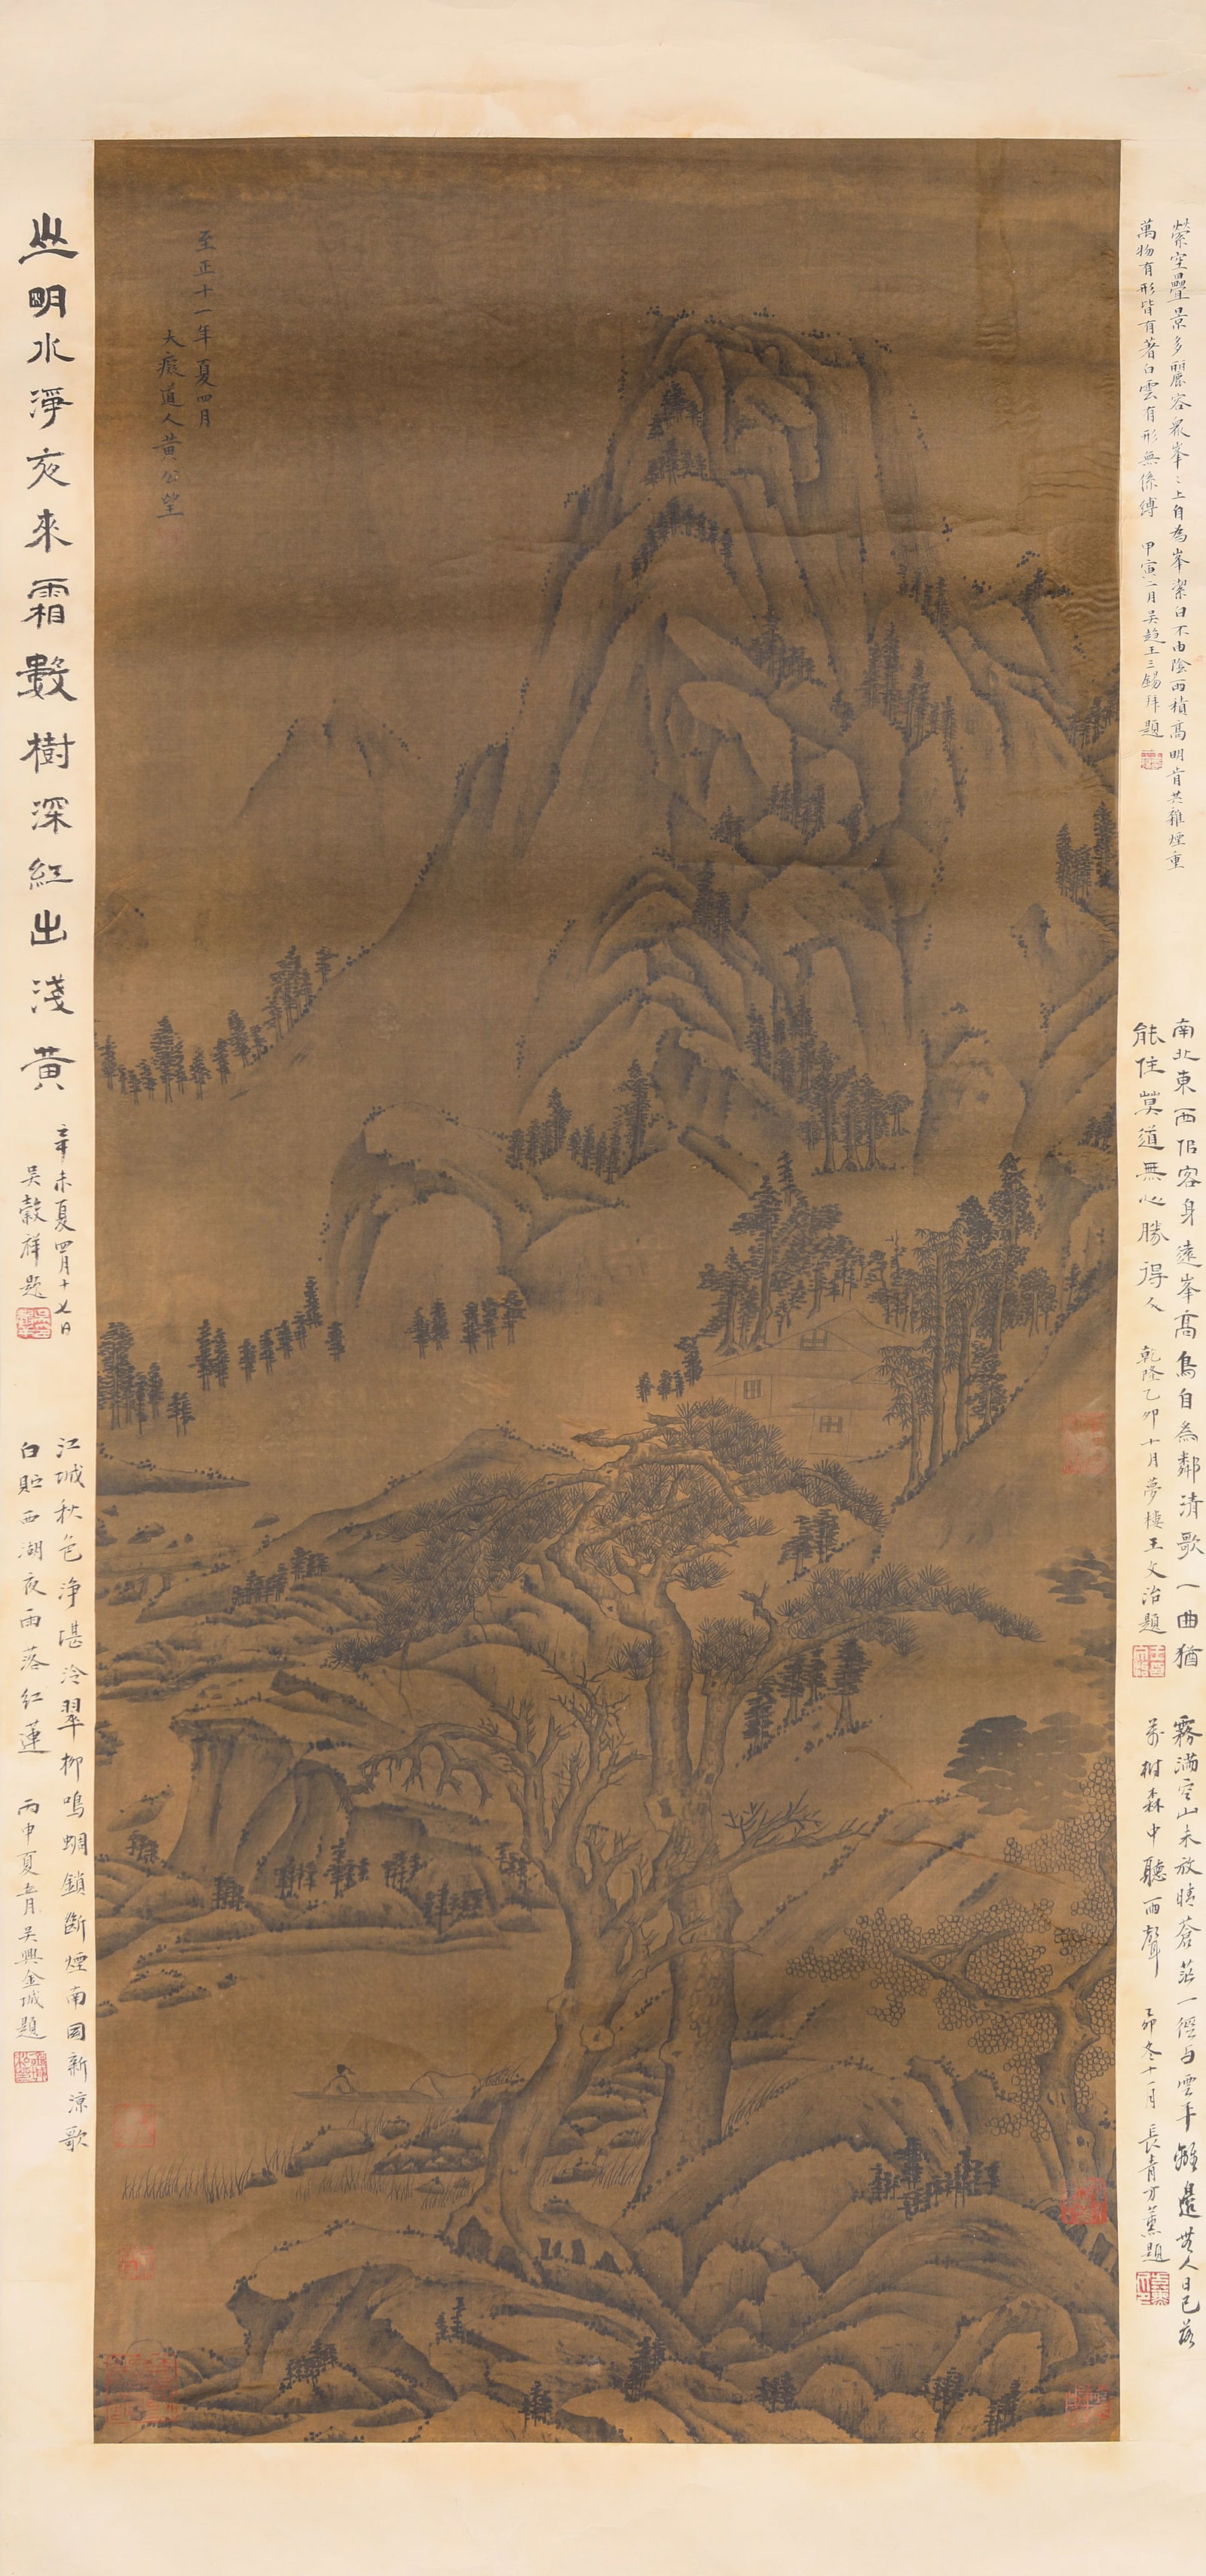 至正十一年夏四月
大癡道人黃公望
縈空疊景多麗容衆峯〻上自為峯潔白不由陰雨積高明肯共雜煙重
萬物有形皆有著白雲有形無係縛 甲寅二月吳趨王三錫拜題
南北東西似客身遠峯高鳥自為鄰清歌一曲猶
能住莫道無心勝得人 乾隆乙卯十月夢樓王文治題
霧滿空山未放晴蒼茫一徑与雲平離邊無人日已落
萬樹森中聽雨聲 乙卯冬十一月長青方薰題
山明水淨夜來霜數樹深紅出淺黃
辛未夏四月十七日
吳穀祥題
江城秋色淨堪冷翠柳鳴蜩鎖斷煙南国新涼歌
白貯西湖夜雨落紅蓮 丙申夏五月吳興金城題